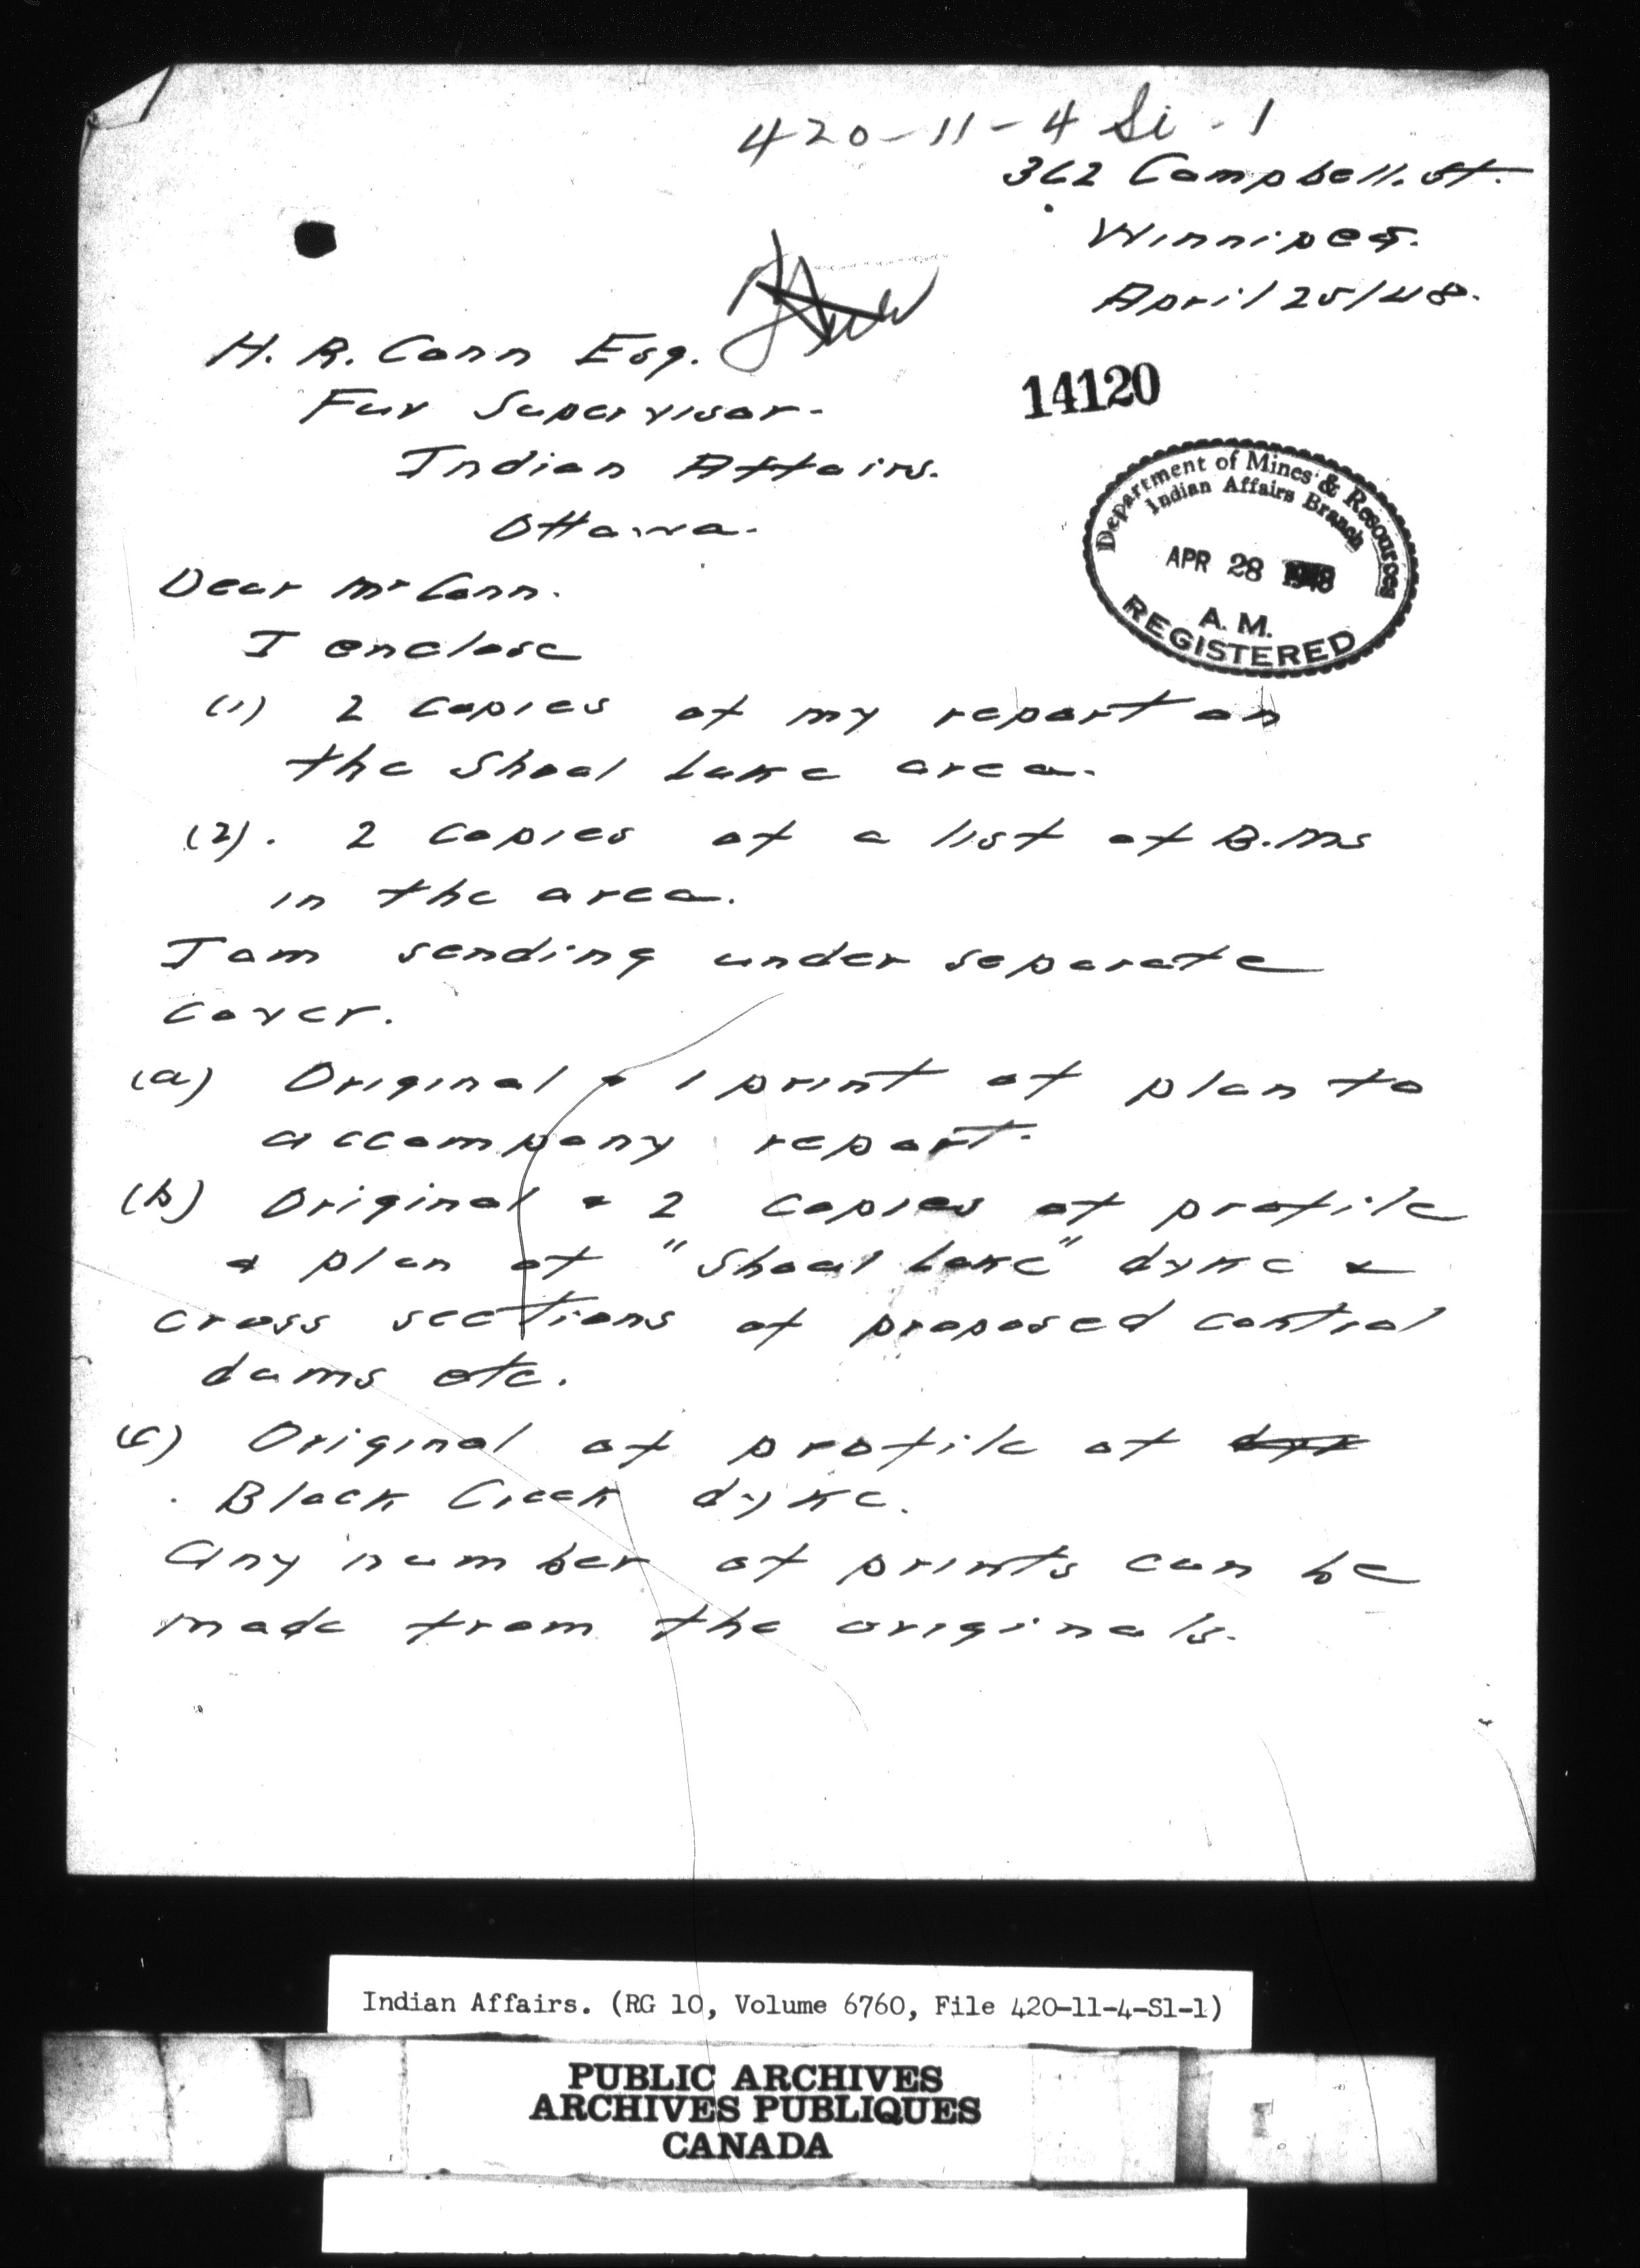 420-11-4 Si-1
362 Campbell. St.
Winnipeg.
April 25/48.
H. R. Conn Esq.
Fur Supervisor-
Indian Affairs.
Ottawa.
14120
Department of Mines & Resources
Indian Affairs Branch
APR 28 1948
A. M.
REGISTERED
Dear Mr Conn.
I enclose
(1) 2 copies of my report on
the Shoal Lake area.
(2). 2 copies of a list of B.Ms
in the area.
I am sending under separate
cover.
(a) Original & 1 print of plan to
accompany report.
(b) Original & 2 copies of profile
& plan of "Shoal Lake" dyke &
cross sections of proposed control
dams etc.
(c) Original of profile of
Black Creek dyke.
Any number of prints can be
made from the originals.
Indian Affairs. (RG 10, Volume 6760, File 420-11-4-S1-1)
PUBLIC ARCHIVES
ARCHIVES PUBLIQUES
CANADA